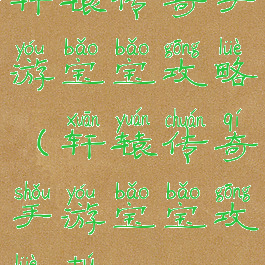 轩辕传奇手
yóu bǎo bǎo gōng lüè
游宝宝攻略
xuān yuán chuán qí
（轩辕传奇
shǒu yóu bǎo bǎo gōng
手游宝宝攻
lüè tú